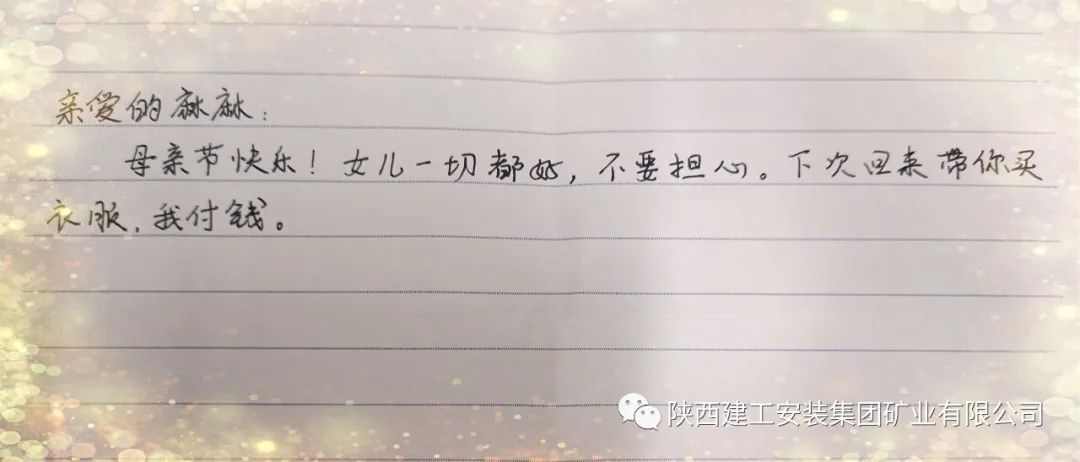 亲爱的麻麻：
母亲节快乐！女儿一切都好，不要担心。下次回来带你买
衣服，我付钱。
陕西建工安装集团矿业有限公司